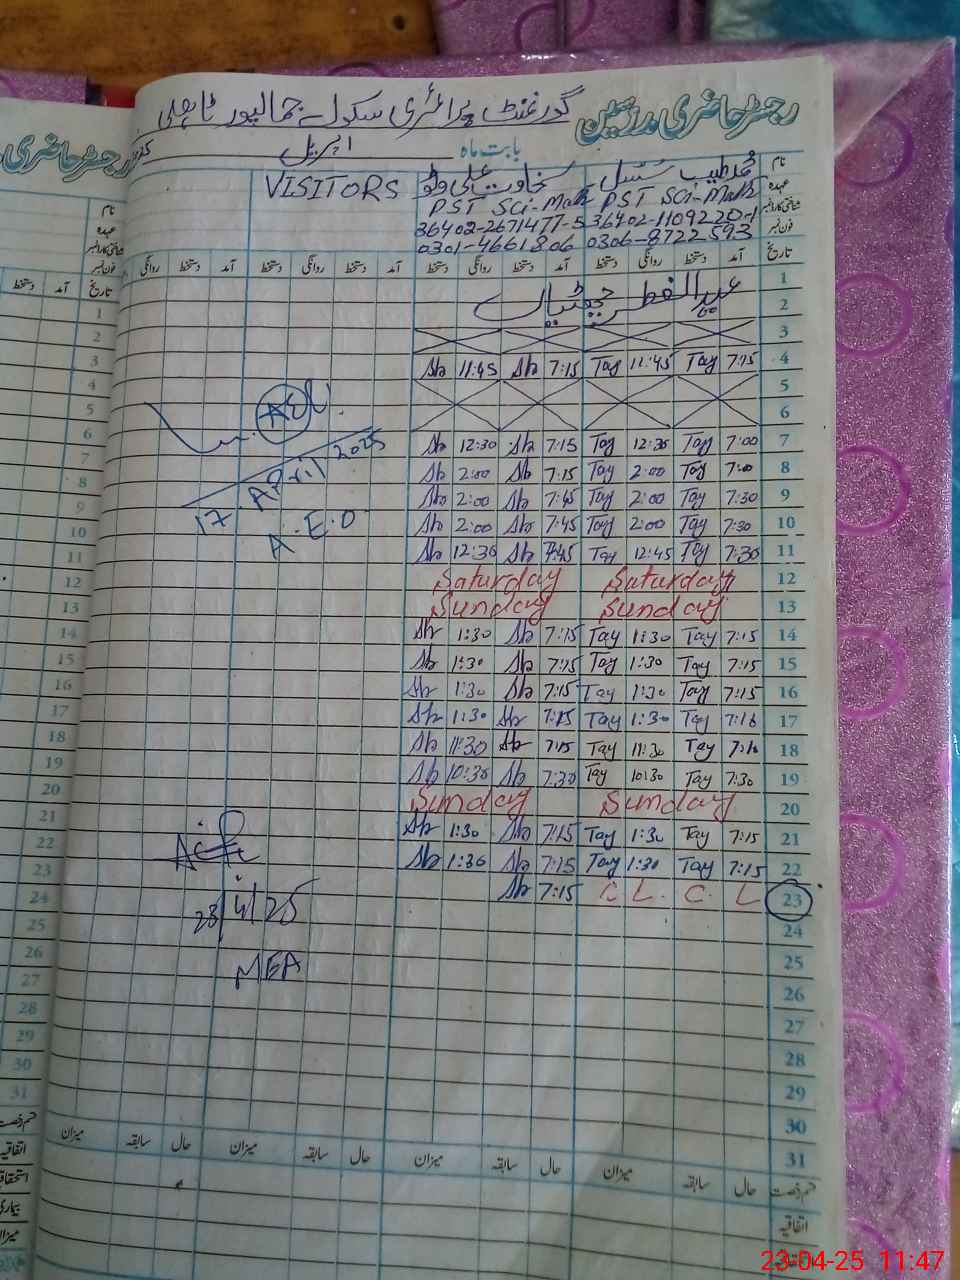 رجسٹر حاضری مدرسین
گورنمنٹ پرائمری سکول جمالپور
بابت ماہ اپریل
نام محمد طیب سخاوت علی وٹو VISITORS
عہدہ PST Sci-Math PST Sci-Math
شناختی کارڈ نمبر 36402-1109220-1 36402-2671477-5
فون نمبر 0306-8722593 0301-4661806
تاریخ آمد دستخط روانگی دستخط آمد دستخط روانگی دستخط آمد دستخط روانگی دستخط آمد دستخط روانگی
1
2 عید الفطر چھٹیاں
3
4 7:15 Tay 11:45 Tay 7:15 Sh 11:45 Sh
5
6
7 7:00 Tay 12:30 Tay 7:15 Sh 12:30 Sh
8 7:00 Tay 2:00 Tay 7:15 Sh 2:00 Sh
9 7:30 Tay 2:00 Tay 7:45 Sh 2:00 Sh
10 7:30 Tay 2:00 Tay 7:45 Sh 2:00 Sh
11 7:30 Tay 12:45 Tay 7:45 Sh 12:30 Sh
12 Saturday Saturday
13 Sunday Sunday
14 7:15 Tay 1:30 Tay 7:15 Sh 1:30 Sh
15 7:15 Tay 1:30 Tay 7:15 Sh 1:30 Sh
16 7:15 Tay 1:30 Tay 7:15 Sh 1:30 Sh
17 7:16 Tay 1:30 Tay 7:15 Sh 1:30 Sh
18 Tay 11:30 Tay 7:15 Sh 11:30 Sh
19 7:30 Tay 10:30 Tay 7:30 Sh 10:30 Sh
20 Sunday Sunday
21 7:15 Tay 1:30 Tay 7:15 Sh 1:30 Sh
22 7:15 Tay 1:30 Tay 7:15 Sh 1:30 Sh
23 C L C. L 7:15 Sh
24
25
26
27
28
29
30
31
AEO
17. April 2025
A.E.O
23/4/25
MEA
قسم رخصت حال سابقہ میزان حال سابقہ میزان حال سابقہ میزان حال سابقہ میزان
اتفاقیہ
رجسٹر حاضری
نام
عہدہ
شناختی کارڈ نمبر
فون نمبر
تاریخ آمد دستخط
1
2
3
4
5
6
7
8
9
10
11
12
13
14
15
16
17
18
19
20
21
22
23
24
25
26
27
28
29
30
31
قسم رخصت
اتفاقیہ
استحقاقیہ
بیماری
میزان
23-04-25 11:47